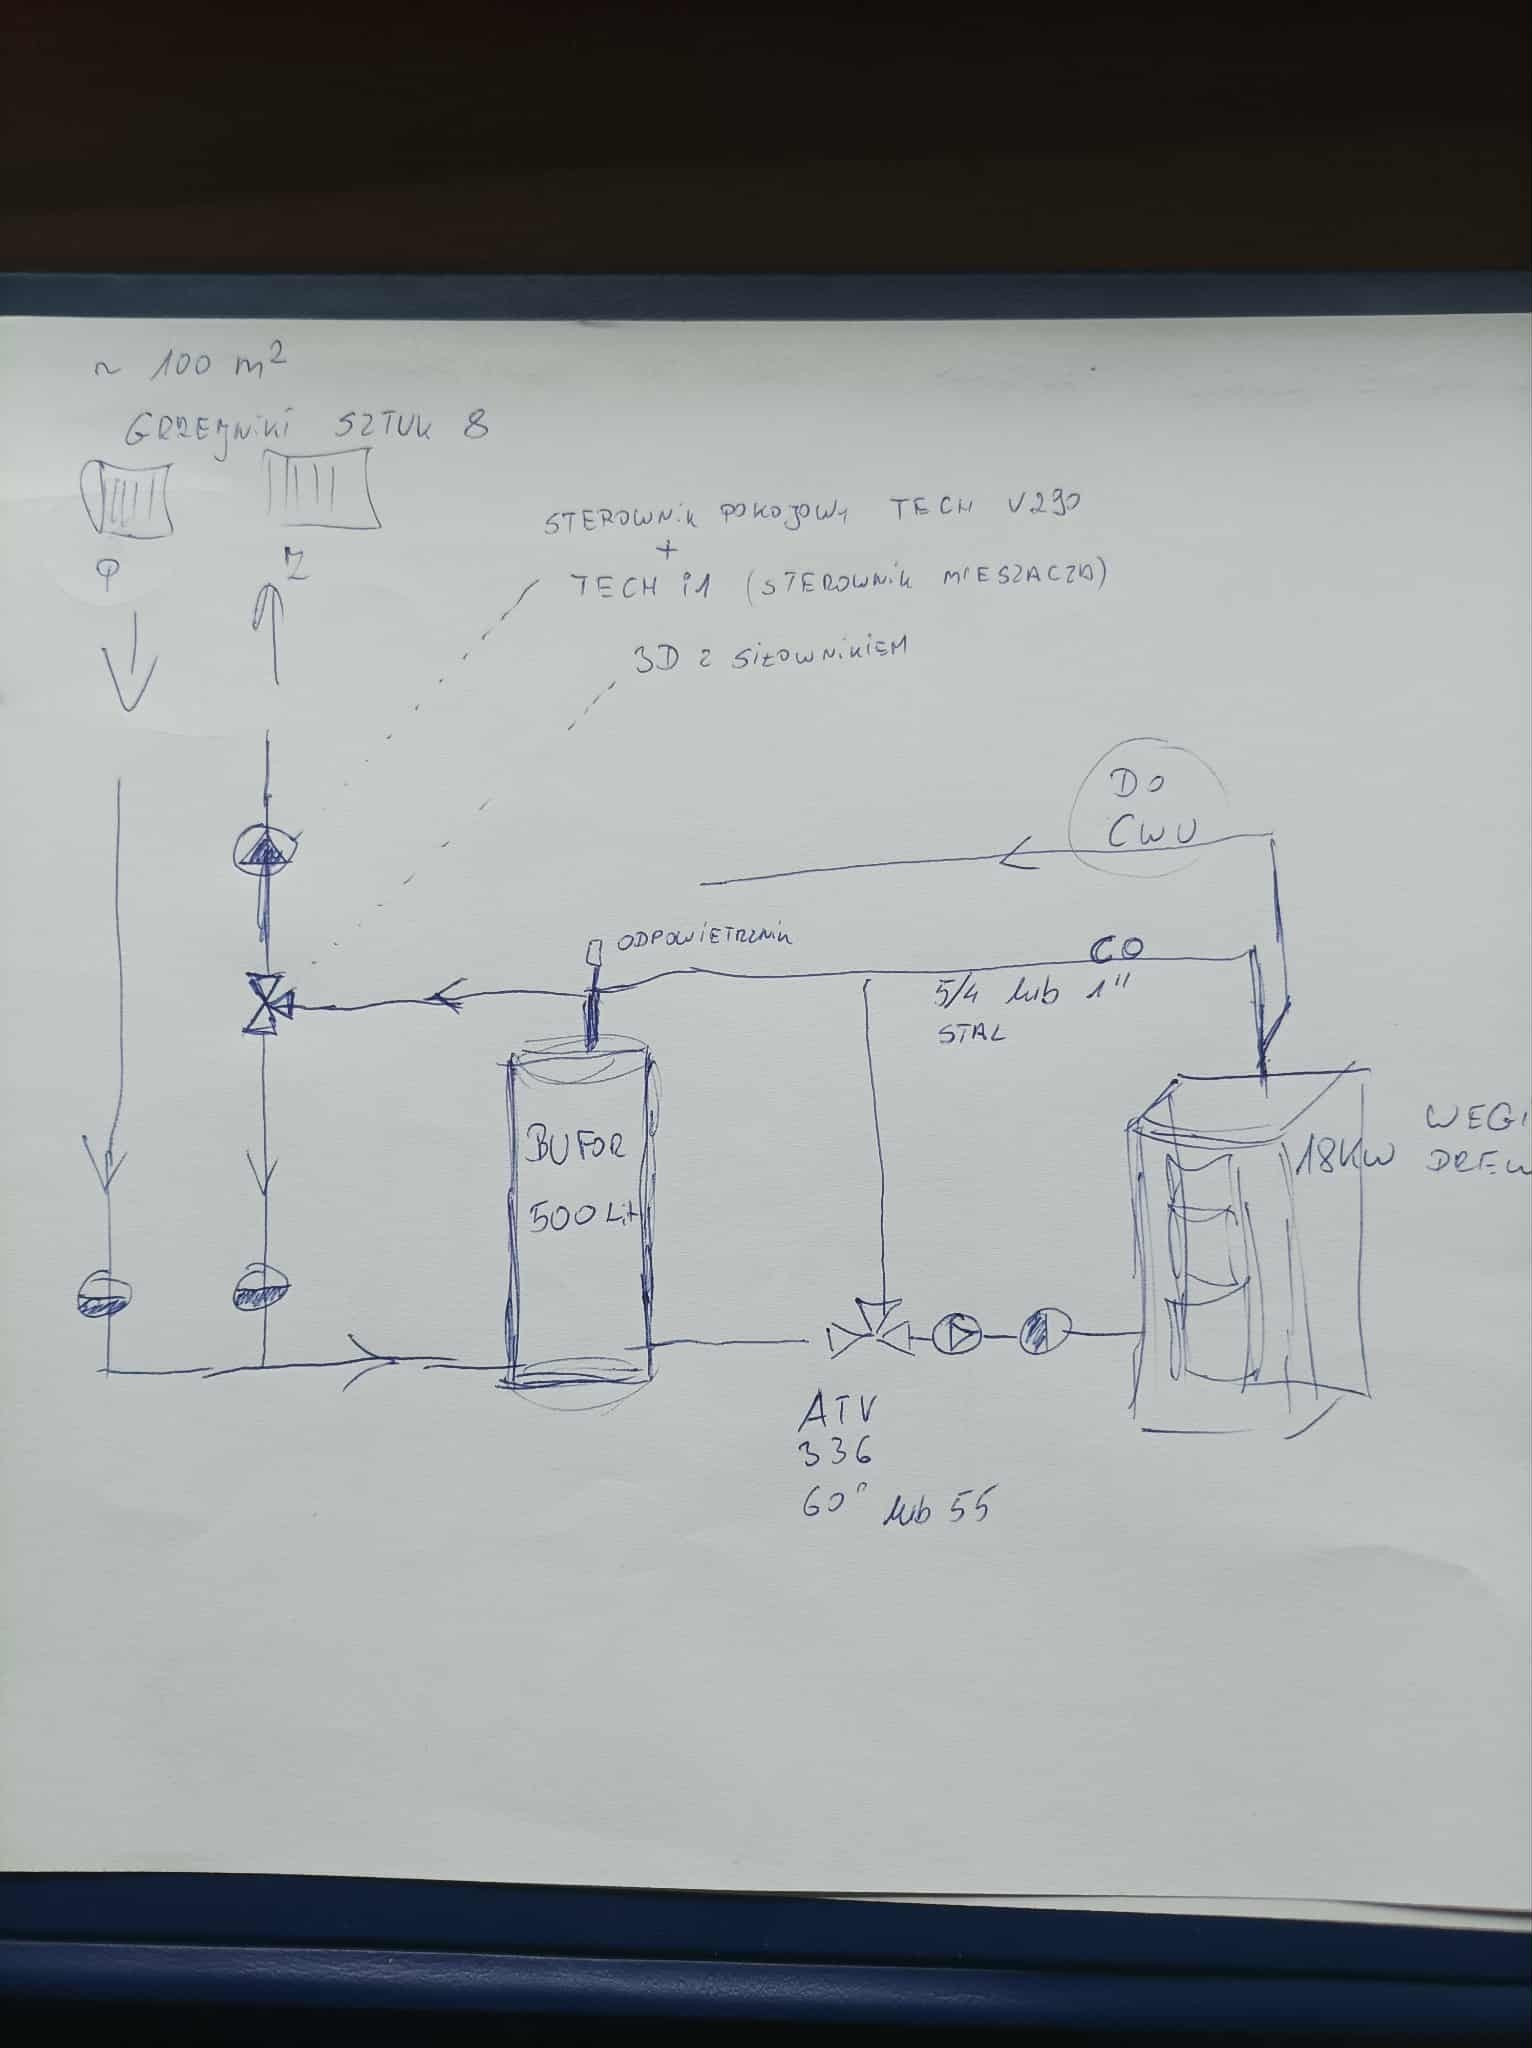 ~ 100 m²
GRZEJNIKI SZTUK 8
P
Z
STEROWNIK POKOJOWY TECH V290
+
TECH i1 (STEROWNIK MIESZACZA)
3D Z SIŁOWNIKIEM
DO
CWU
ODPOWIETRZNIK
CO
5/4 lub 1"
STAL
BUFOR
500 Lit
18KW
WEGI
DREW
ATV
336
60° lub 55